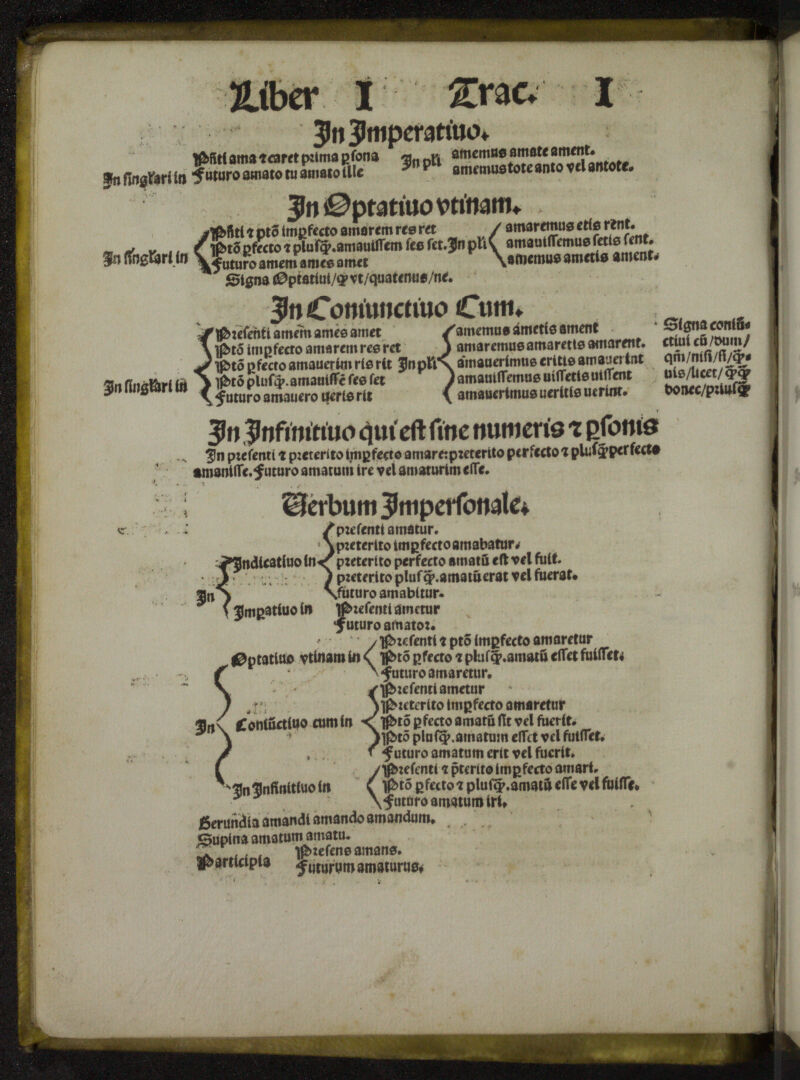 Liber I Trac. I
In Imperatiuo.
In singľari in Pñti ama ⁊ caret prima ꝑsona In pli amemus amate ament.
Futuro amato tu amato ille amemus tote anto vel antote.
In Optatiuo vtinam.
Pñti ⁊ ptõ imꝑfecto amarem res ret amaremus etis rẽnt.
In singľari in Ptõ ꝑfecto ⁊ plusꝙ̃.amauissem ses set. In pli amauissemus setis sent.
Futuro amem ames amet amemus ametis ament.
Signa Optatiui/ꝙ vt/quatenus/ne.
In Coniunctiuo Cum.
Presenti amem ames amet amemus ametis ament Signa coniũ-
Ptõ imꝑfecto amarem res ret amaremus amaretis amarent. ctiui cũ/dum/
Ptõ ꝑfecto amauerim ris rit In pli amauerimus eritis amauerint qm̃/nisi/si/ꝙ-
In singľari in Ptõ plusꝙ̃.amauissẽ ses set amauissemus uissetis uissent uis/licet/ꝙ̃ꝙ̃
Futuro amauero ueris rit amauerimus ueritis uerint. donec/priusꝙ̃
In Infinitiuo qui est sine numeris ⁊ ꝑsonis
In presenti ⁊ preterito imꝑfecto amare:preterito perfecto ⁊ plusꝙ̃perfecto
amauisse.Futuro amatum ire vel amaturim esse.
Verbum Impersonale.
presenti amatur.
preterito imꝑfecto amabatur.
Indicatiuo in preterito perfecto amatũ est vel fuit.
preterito plusꝙ̃.amatũ erat vel fuerat.
In futuro amabitur.
Imꝑatiuo in Presenti ametur
Futuro amator.
Presenti ⁊ ptõ imꝑfecto amaretur
Optatiuo vtinam in Ptõ ꝑfecto ⁊ plusꝙ̃.amatũ esset fuisset.
Futuro amaretur.
Presenti ametur
Preterito imꝑfecto amaretur
In Coniũctiuo cum in Ptõ ꝑfecto amatũ sit vel fuerit.
Ptõ plusꝙ̃.amatum esset vel fuisset.
Futuro amatum erit vel fuerit.
Presenti ⁊ p̃terito imꝑfecto amari.
In Infinitiuo in Ptõ ꝑfecto ⁊ plusꝙ̃.amatũ esse vel fuisse.
Futuro amatum iri.
Gerundia amandi amando amandum.
Supina amatum amatu.
Participia Presens amans.
Futurum amaturus.